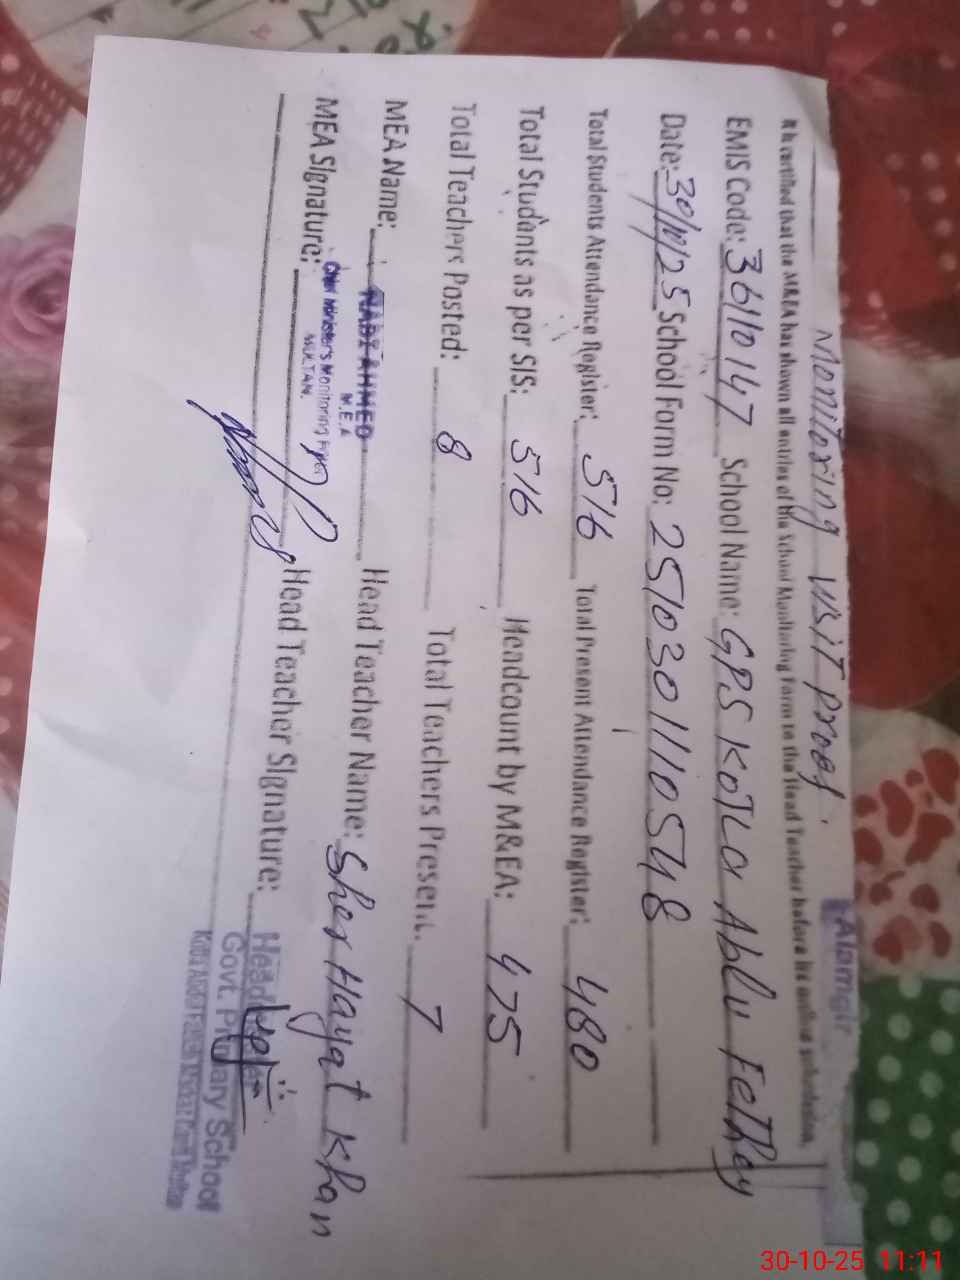 Monitoring visit proof.
Alamgir
It is certified that the M&EA has shown all entries of the School Monitoring Form to the Head Teacher before its online submission.
EMIS Code: 36110147 School Name: GPS Kotla Ablu Fethey
Date: 30/10/25 School Form No: 2510301110548
Total Students Attendance Register: 516 Total Present Attendance Register: 480
Total Students as per SIS: 516 Headcount by M&EA: 475
Total Teachers Posted: 8 Total Teachers Present: 7
MEA Name: NABI AHMED Head Teacher Name: Sher Hayat Khan
M.E.A
Chief Minister's Monitoring Force
MULTAN.
MEA Signature: Head Teacher Signature:
Govt. Primary School
30-10-25 11:11